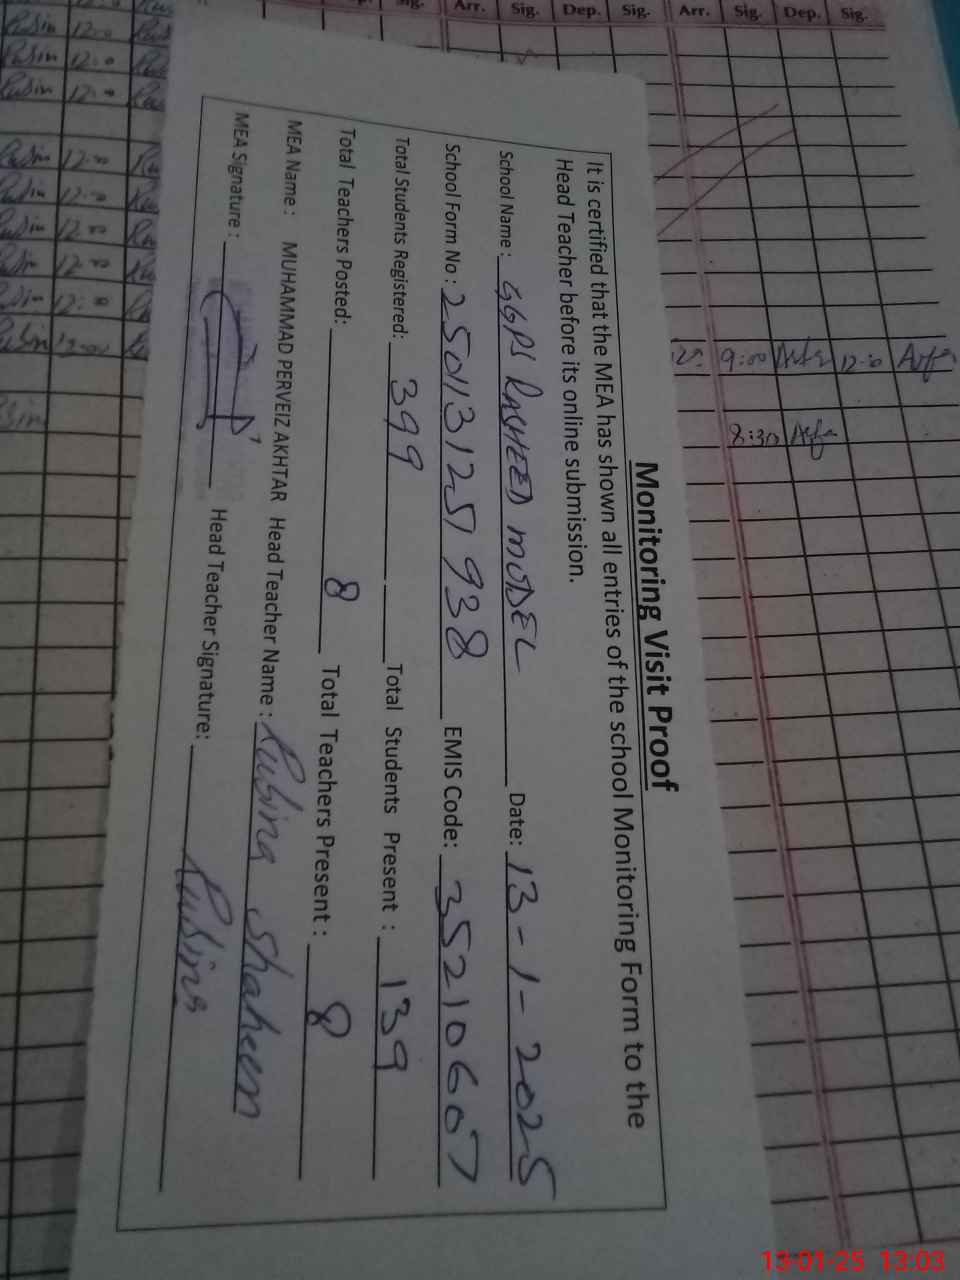 Arr. Sig. Dep. Sig. Arr. Sig. Dep. Sig.
9:00 12:0
8:30
Monitoring Visit Proof
It is certified that the MEA has shown all entries of the school Monitoring Form to the
Head Teacher before its online submission.
School Name: GGPS RASHEED MODEL Date: 13-1-2025
School Form No: 250131251938 EMIS Code: 35210607
Total Students Registered: 399 Total Students Present: 139
Total Teachers Posted: 8 Total Teachers Present: 8
MEA Name: MUHAMMAD PERVEIZ AKHTAR Head Teacher Name: Rubina Shaheen
MEA Signature: Head Teacher Signature: Rubina
13-01-25 13:03